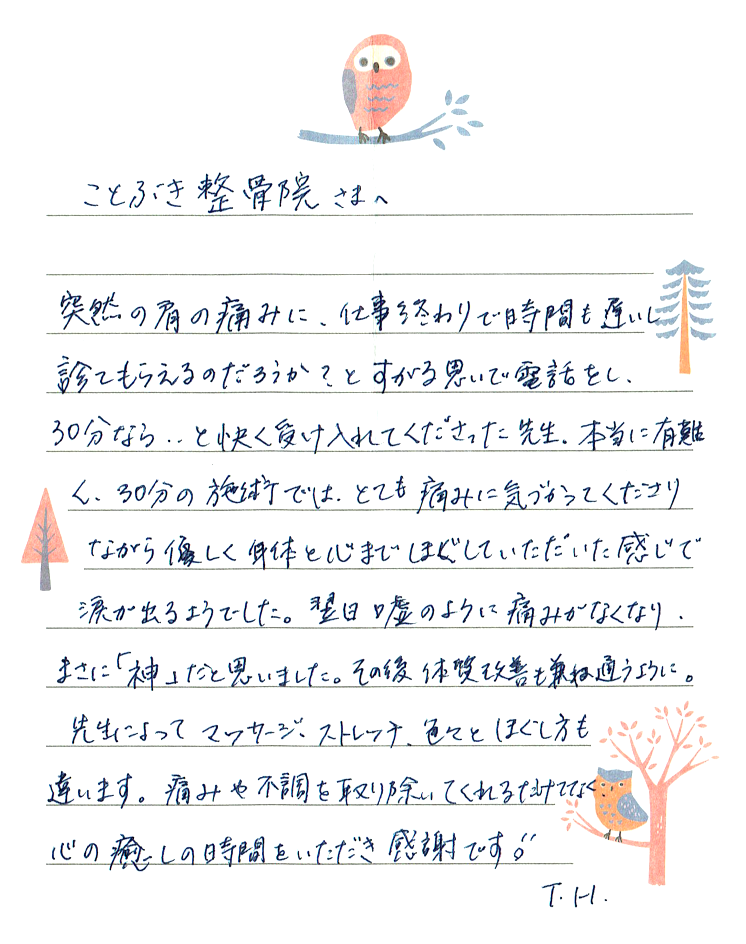 ことぶき整骨院 さまへ
突然の肩の痛みに、仕事終わりで時間も遅いし
診てもらえるのだろうか?と すがる思いで電話をし、
30分なら‥と快く受け入れてくださった先生。本当に有難
く、30分の施術では、とても痛みに気づかってくださり
ながら優しく身体と心までほぐしていただいた感じで
涙が出るようでした。翌日嘘のように痛みがなくなり、
まさに「神」だと思いました。その後 体質改善も兼ね通うように。
先生によって マッサージ、ストレッチ、色々とほぐし方も
違います。痛みや不調を取り除いてくれるだけでなく
心の癒しの時間をいただき感謝です。
T.H.